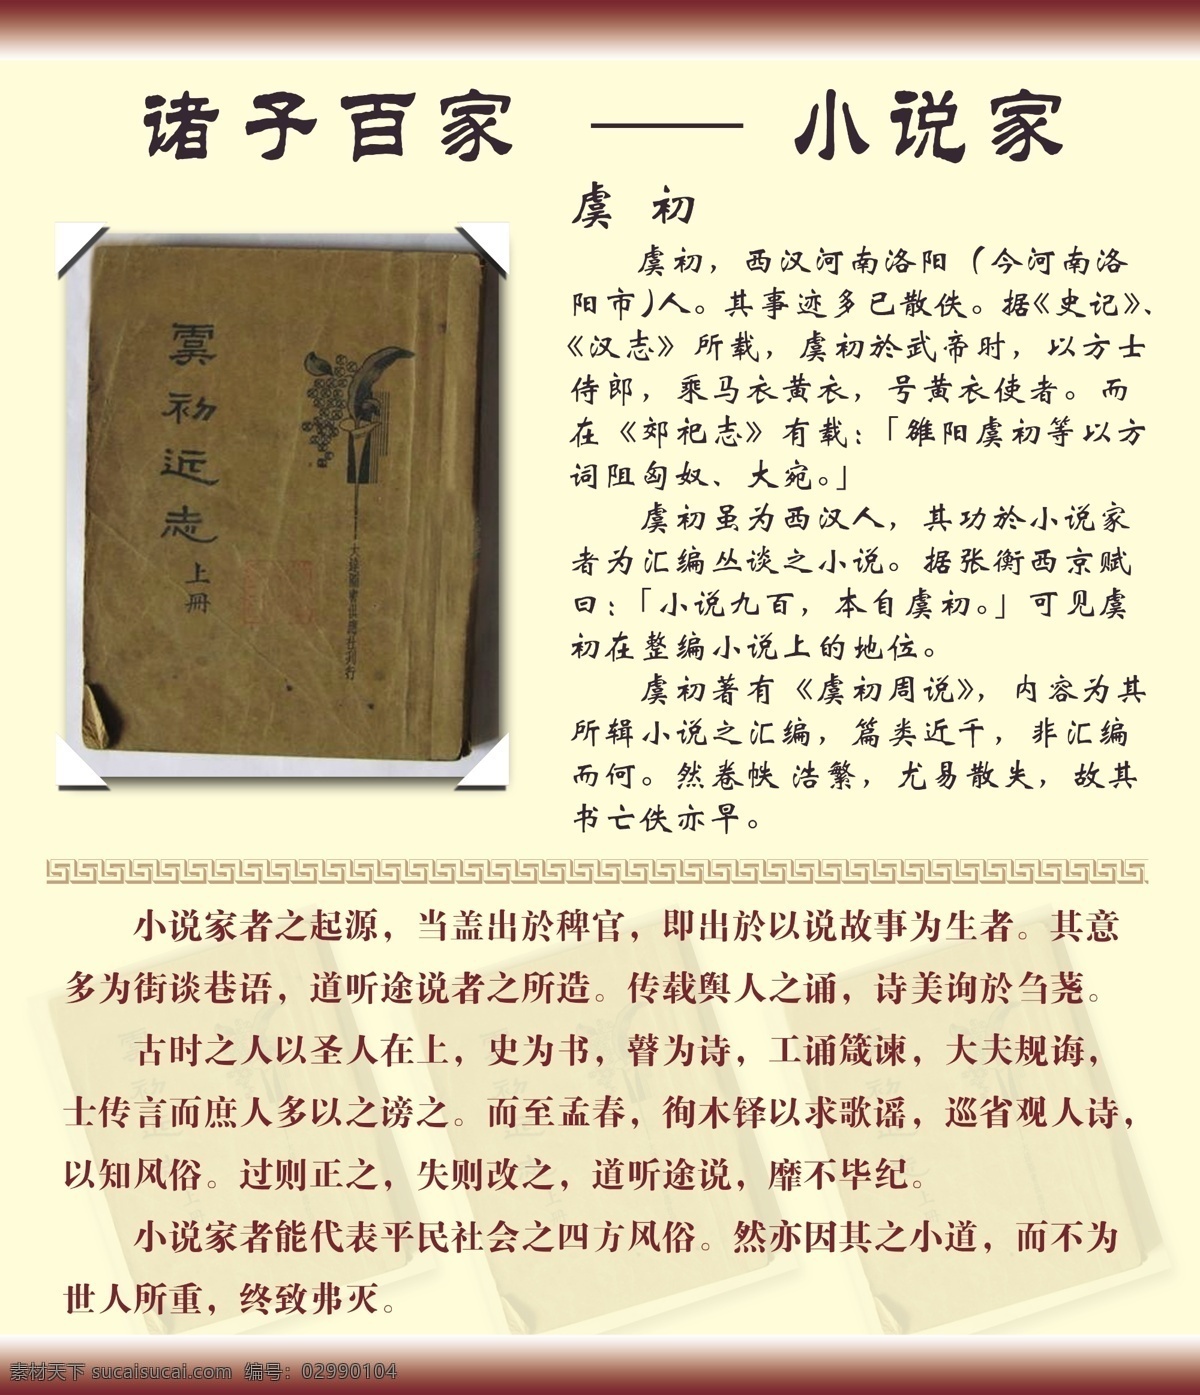 诸子百家 —— 小说家
虞初近志
上册
大达图书供应社刊行
虞 初
虞初，西汉河南洛阳（今河南洛
阳市)人。其事迹多已散佚。据《史记》、
《汉志》所载，虞初於武帝时，以方士
侍郎，乘马衣黄衣，号黄衣使者。而
在《郊祀志》有载:「雒阳虞初等以方
词阻匈奴、大宛。」
虞初虽为西汉人，其功於小说家
者为汇编丛谈之小说。据张衡西京赋
曰:「小说九百，本自虞初。」可见虞
初在整编小说上的地位。
虞初著有《虞初周说》，内容为其
所辑小说之汇编，篇类近千，非汇编
而何。然卷帙浩繁，尤易散失，故其
书亡佚亦早。
小说家者之起源，当盖出於稗官，即出於以说故事为生者。其意
多为街谈巷语，道听途说者之所造。传载舆人之诵，诗美询於刍荛。
古时之人以圣人在上，史为书，瞽为诗，工诵箴谏，大夫规诲，
士传言而庶人多以之谤之。而至孟春，徇木铎以求歌谣，巡省观人诗，
以知风俗。过则正之，失则改之，道听途说，靡不毕纪。
小说家者能代表平民社会之四方风俗。然亦因其之小道，而不为
世人所重，终致弗灭。
素材天下 sucaisucai.com 编号：02990104